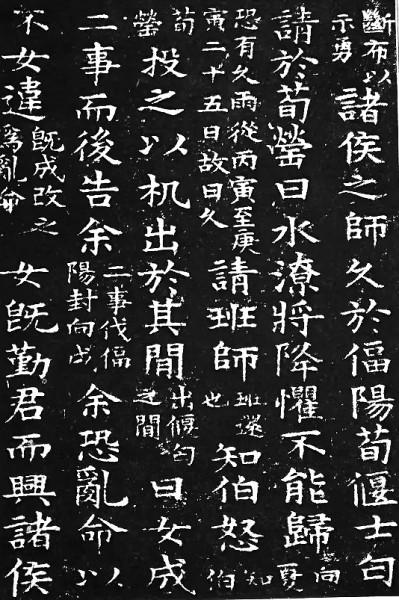 斷布以示勇諸侯之師久於偪陽荀偃士匄
請於荀罃曰水潦將降懼不能歸向夏
恐有久雨從丙寅至庚寅二十五日故曰久請班師班還也知伯怒知伯
荀罃投之以机出於其間出偃匄之間曰女成
二事而後告余二事伐偪陽封向戌余恐亂命以
不女違既成改之為亂命女既勤君而興諸侯